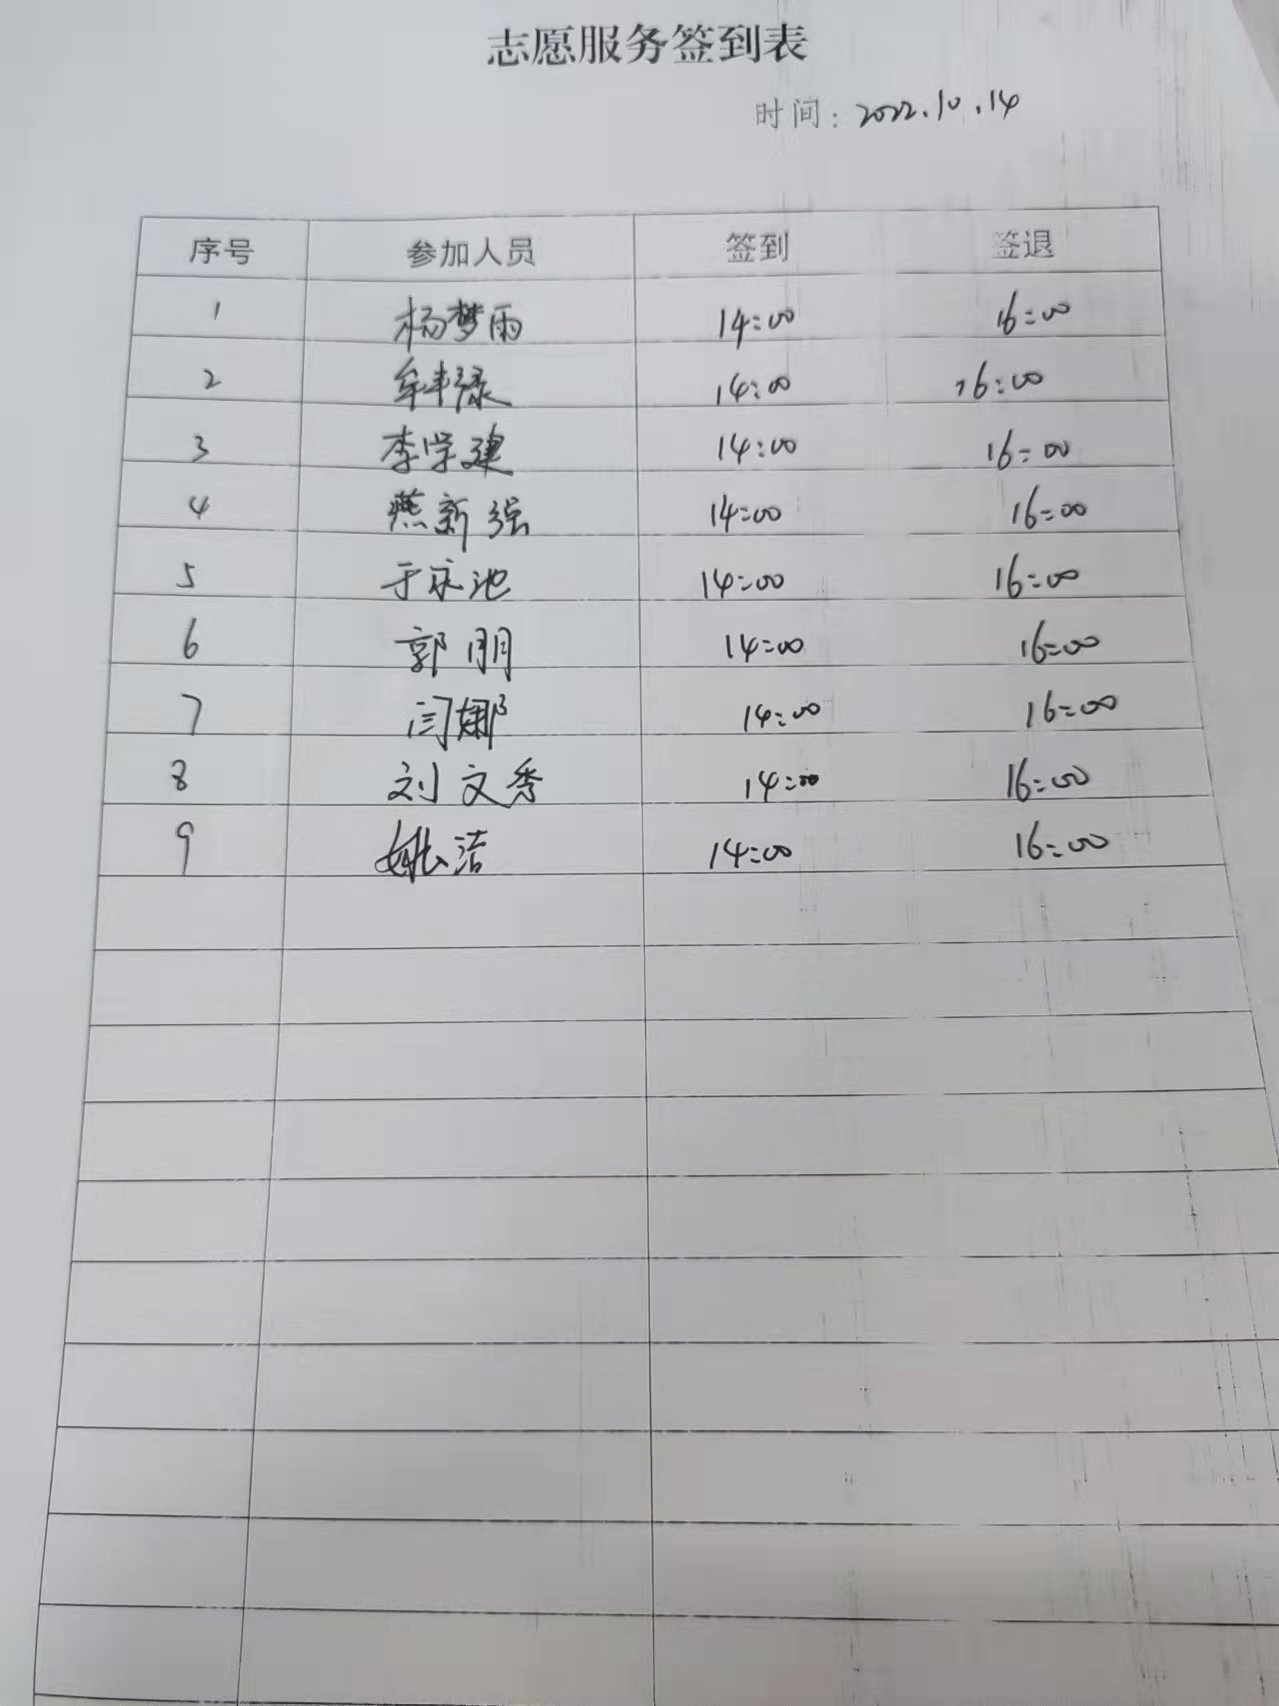 志愿服务签到表
时间：2022.10.14
序号 参加人员 签到 签退
1 杨梦雨 14:00 16:00
2 牟丰禄 14:00 16:00
3 李学建 14:00 16:00
4 燕新强 14:00 16:00
5 于永池 14:00 16:00
6 郭朋 14:00 16:00
7 闫娜 14:00 16:00
8 刘文秀 14:00 16:00
9 姚洁 14:00 16:00